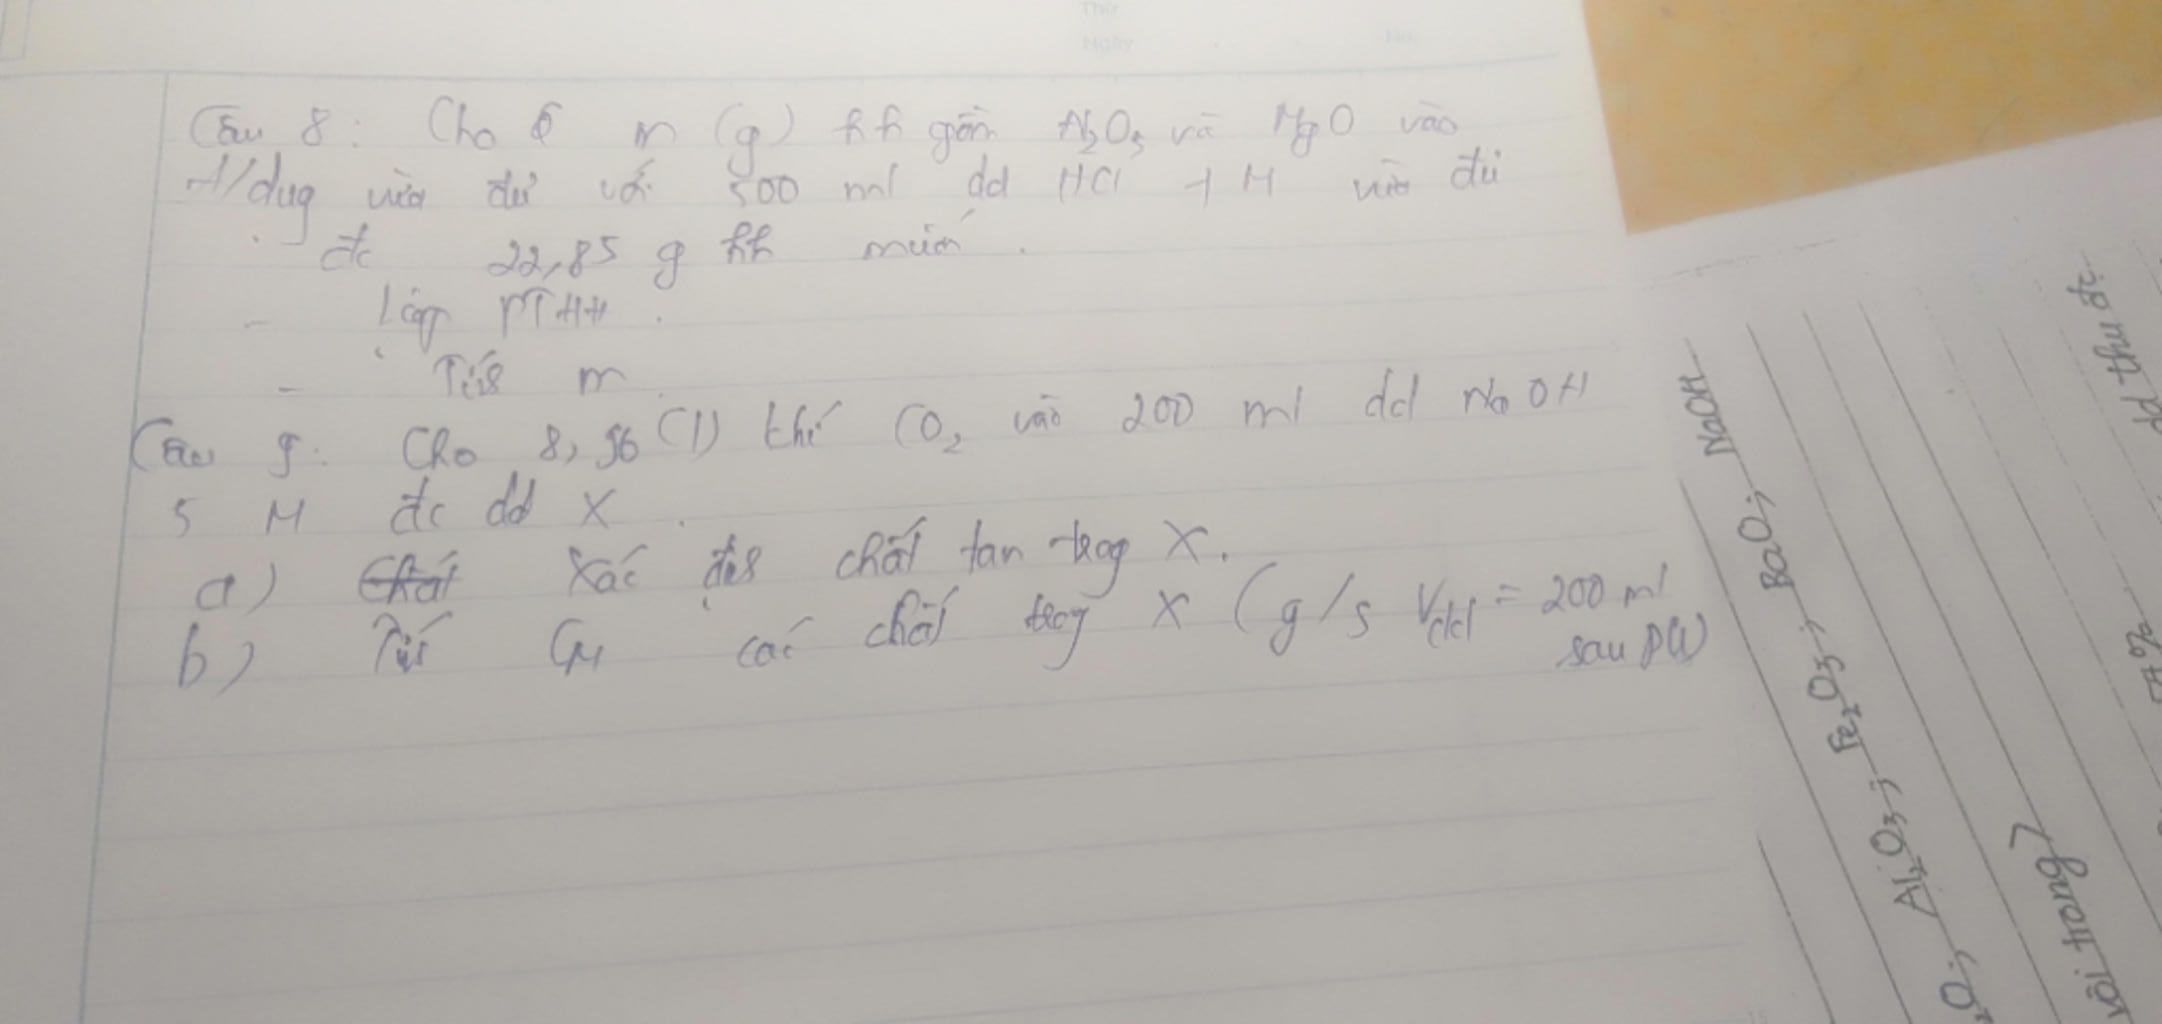 Thứ
Ngày
No.
Câu 8: Cho m (g) hh gồm Al2O3 và MgO vào
t/dụg vừa đủ với 500 ml dd HCl 1 M vừa đủ
đc 22,85 g hh muối.
- Lập PTHH.
- Tíh m
Câu 9: Cho 8,96 (l) khí CO2 vào 200 ml dd NaOH
5 M đc dd X.
a) Chất Xác địh chất tan trog X.
b) Tíh CM các chất trog X (g/s Vdd = 200 ml
sau PƯ)
NaOH
BaO;
Fe2O3;
Al2O3;
O;
vôi trong?
dd thu đc